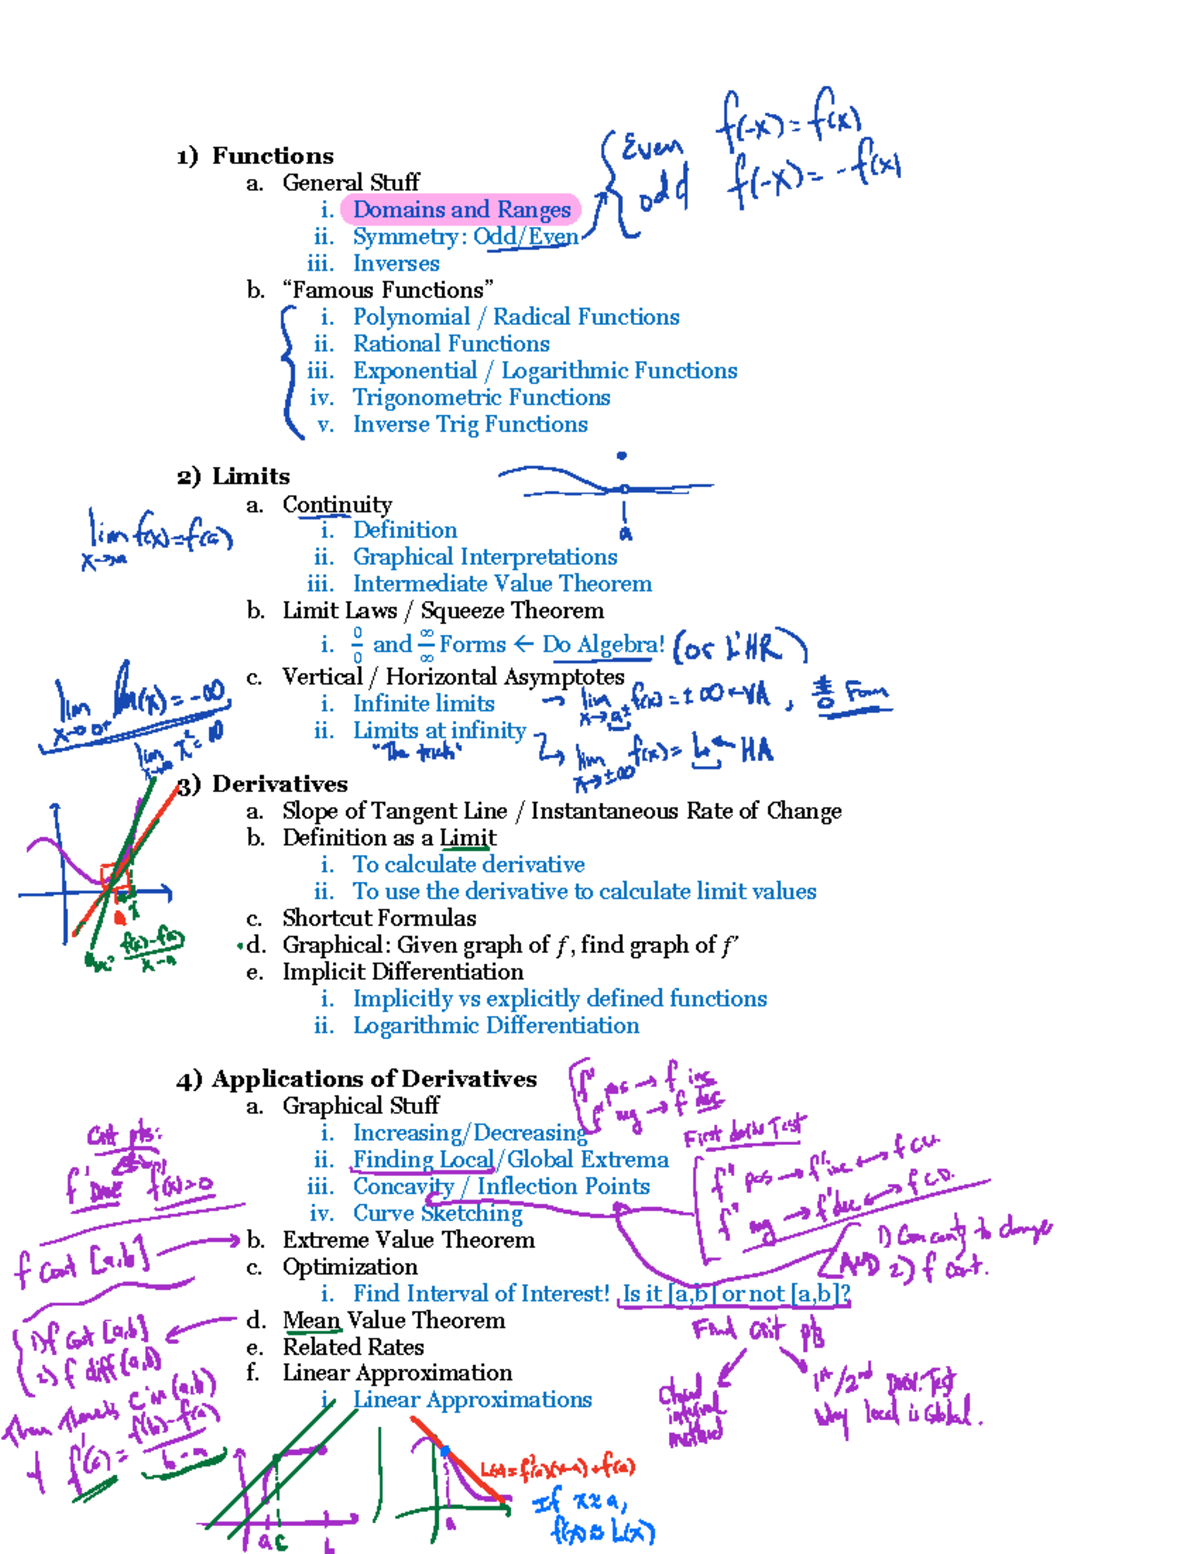 Even f(-x) = f(x)
odd f(-x) = -f(x)
1) Functions
a. General Stuff
i. Domains and Ranges
ii. Symmetry: Odd/Even
iii. Inverses
b. “Famous Functions”
i. Polynomial / Radical Functions
ii. Rational Functions
iii. Exponential / Logarithmic Functions
iv. Trigonometric Functions
v. Inverse Trig Functions
2) Limits
a. Continuity
a
lim f(x) = f(a)
x→a
i. Definition
ii. Graphical Interpretations
iii. Intermediate Value Theorem
b. Limit Laws / Squeeze Theorem
i. 0/0 and ∞/∞ Forms ← Do Algebra! (or L'HR)
c. Vertical / Horizontal Asymptotes
i. Infinite limits → lim x→a± f(x) = ±∞ ← VA, #/0 Form
ii. Limits at infinity → lim x→±∞ f(x) = L ← HA
lim ln(x) = -∞
x→0+
lim x² = ∞
x→∞
3) Derivatives
a. Slope of Tangent Line / Instantaneous Rate of Change
b. Definition as a Limit
i. To calculate derivative
ii. To use the derivative to calculate limit values
c. Shortcut Formulas
d. Graphical: Given graph of f, find graph of f'
e. Implicit Differentiation
i. Implicitly vs explicitly defined functions
ii. Logarithmic Differentiation
a x
f(x)-f(a)
x-a
4) Applications of Derivatives
a. Graphical Stuff
f' pos → f inc
f' neg → f dec
i. Increasing/Decreasing
ii. Finding Local/Global Extrema
iii. Concavity / Inflection Points
iv. Curve Sketching
First deriv Test
f'' pos → f' inc ↔ f CU.
f'' neg → f' dec ↔ f CD.
1) Concavity to change
AND 2) f cont.
Crit pts:
f' DNE f'(x)=0
f cont [a,b] → b. Extreme Value Theorem
c. Optimization
i. Find Interval of Interest! Is it [a,b] or not [a,b]?
Find crit pts
Closed interval method
1st/2nd Deriv. Test
Why local is Global.
d. Mean Value Theorem
1) f cont [a,b]
2) f diff (a,b)
Then there's c in (a,b)
f'(c) = f(b)-f(a)
b-a
e. Related Rates
f. Linear Approximation
i. Linear Approximations
L(x) = f'(a)(x-a) + f(a)
If x≈a,
f(x) ≈ L(x)
a c b
a